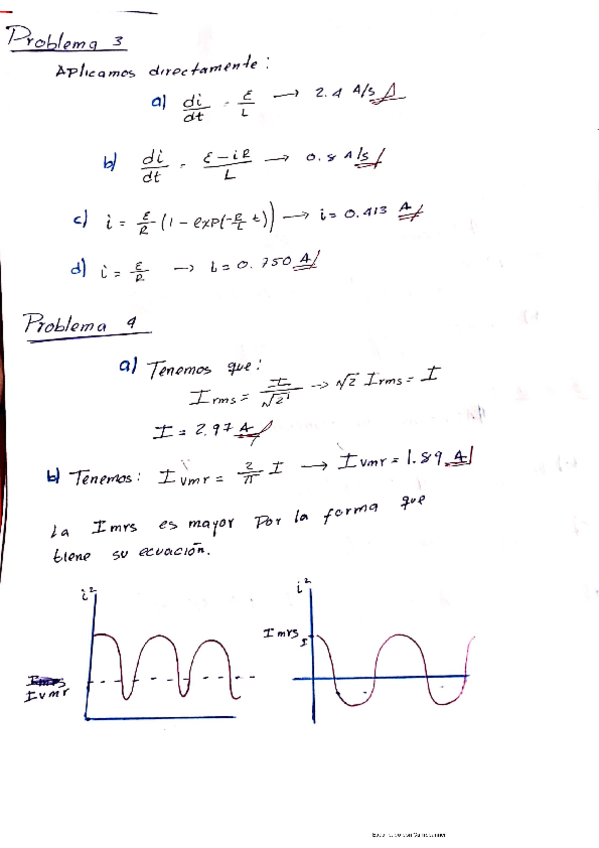 Problema 3
Aplicamos directamente:
a) di/dt = ε/L → 2.4 A/s
b) di/dt = ε-iR/L → 0.8 A/s
c) i = ε/R (1 - exp(-R/L t)) → i = 0.413 A
d) i = ε/R → i = 0.750 A
Problema 4
a) Tenemos que:
I rms = I/√2 → √2 I rms = I
I = 2.97 A
b) Tenemos: I vmr = 2/π I → I vmr = 1.89 A
La I mrs es mayor por la forma que
tiene su ecuación.
i²
I vmr
i²
I mrs
I